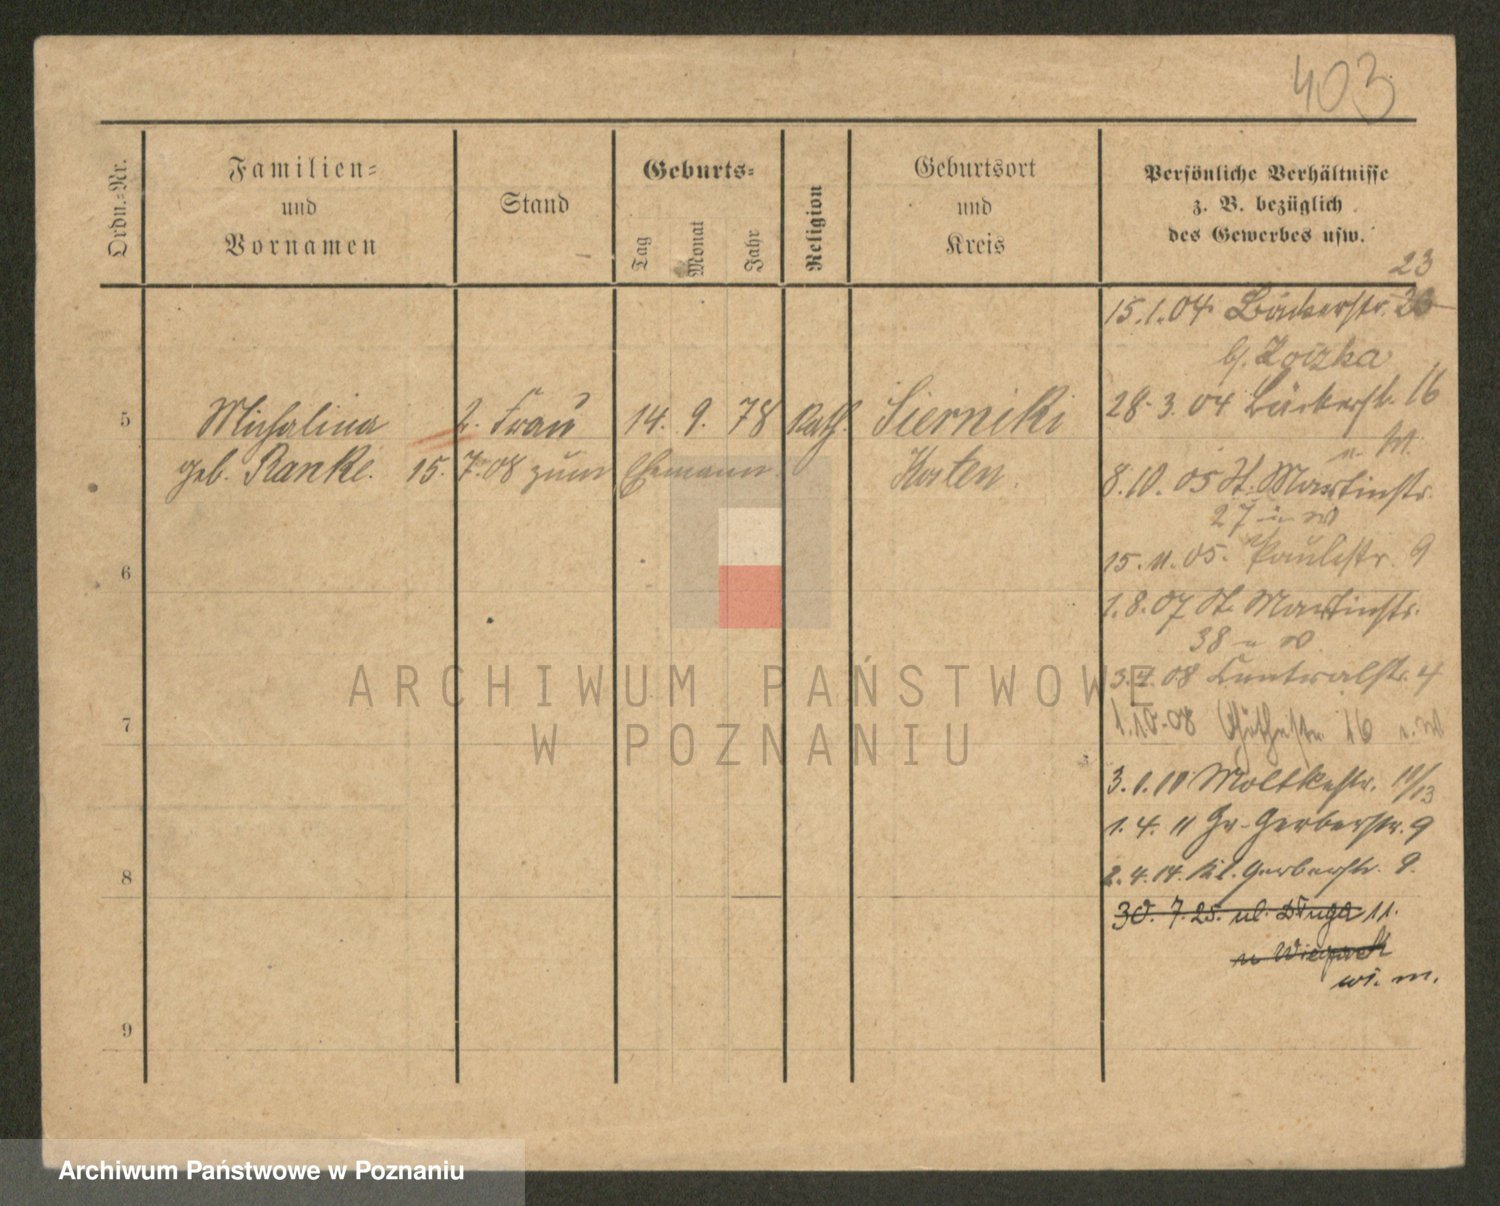 403
Ordn.=Nr.
Familien=
und
Vornamen
Stand
Geburts=
Tag
Monat
Jahr
Religion
Geburtsort
und
Kreis
Persönliche Verhältnisse
z. B. bezüglich
des Gewerbes usw.
23
15.1.04 Bäckerstr.
b/.
28.3.04 Bäckerstr. 16
u. W.
5 Michalina 2. Frau 14. 9. 78 Kath. Sierniki
geb. Ranke. 15.7.08 zum Ehemann.
8.10.05 St. Martinstr.
27 u W
6
15.11.05. Paulistr. 9
1.8.07 St. Martinstr.
38 u W.
3.4.08 Centralstr. 4
7
1.10.08 16 u. W
3.1.10 Moltkestr. 12/13
1.4.11 Gr. Gerberstr. 9
8
2.4.14. Kl. Gerberstr. 9.
30.7.25. ul. Długa 11.
wi. m.
9
ARCHIWUM PAŃSTWOWE
W POZNANIU
Archiwum Państwowe w Poznaniu